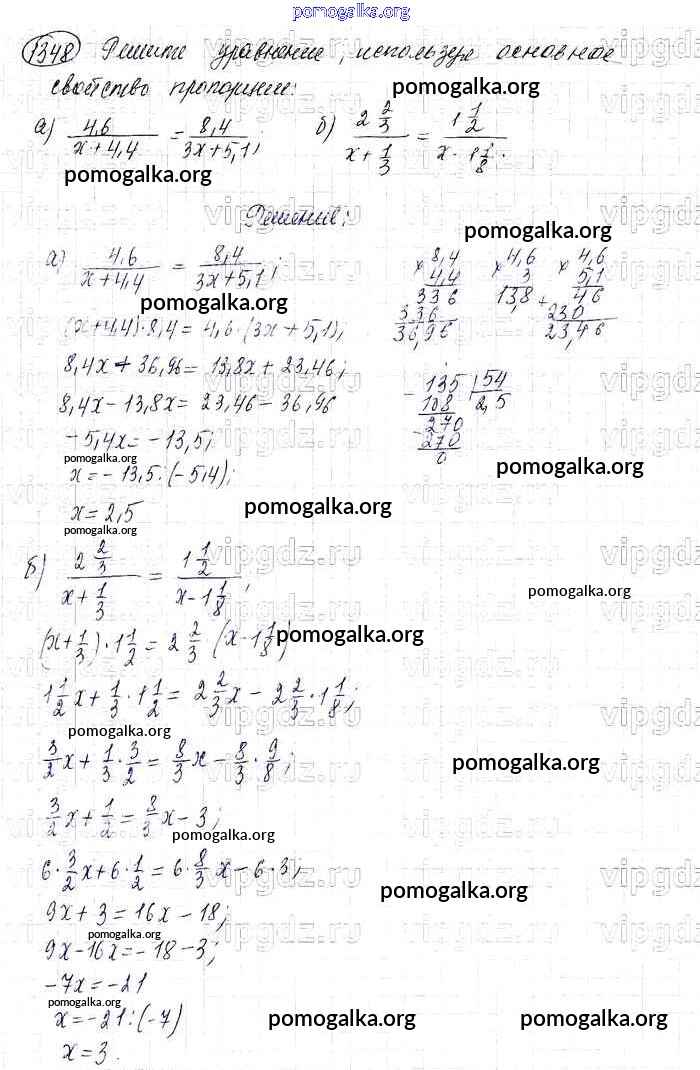 pomogalka.org
1348 Решите уравнение, используя основное
свойство пропорции:
pomogalka.org
а) 4,6/(x+4,4) = 8,4/(3x+5,1); б) 2 2/3/(x+1/3) = 1 1/2/(x-1 1/8).
pomogalka.org
Решение:
pomogalka.org
а) 4,6/(x+4,4) = 8,4/(3x+5,1);
pomogalka.org
(x+4,4)·8,4 = 4,6·(3x+5,1);
8,4x+36,96 = 13,8x+23,46;
8,4x-13,8x = 23,46-36,96
-5,4x = -13,5;
pomogalka.org
x = -13,5:(-5,4);
x = 2,5
pomogalka.org
× 8,4
4,4
336
336
36,96
× 4,6
3
13,8
× 4,6
5,1
+ 46
230
23,46
- 135 | 54
108 2,5
- 270
270
0
pomogalka.org
pomogalka.org
б) 2 2/3/(x+1/3) = 1 1/2/(x-1 1/8);
pomogalka.org
(x+1/3)·1 1/2 = 2 2/3 (x-1 1/8)
pomogalka.org
1 1/2 x + 1/3·1 1/2 = 2 2/3 x - 2 2/3·1 1/8;
pomogalka.org
3/2 x + 1/3·3/2 = 8/3 x - 8/3·9/8;
pomogalka.org
3/2 x + 1/2 = 8/3 x - 3;
pomogalka.org
6·3/2 x + 6·1/2 = 6·8/3 x - 6·3;
pomogalka.org
9x+3 = 16x-18;
pomogalka.org
9x-16x = -18-3;
-7x = -21
pomogalka.org
x = -21:(-7)
pomogalka.org
pomogalka.org
x = 3.
vipgdz.ru
vipgdz.ru
vipgdz.ru
vipgdz.ru
vipgdz.ru
vipgdz.ru
vipgdz.ru
vipgdz.ru
vipgdz.ru
vipgdz.ru
vipgdz.ru
vipgdz.ru